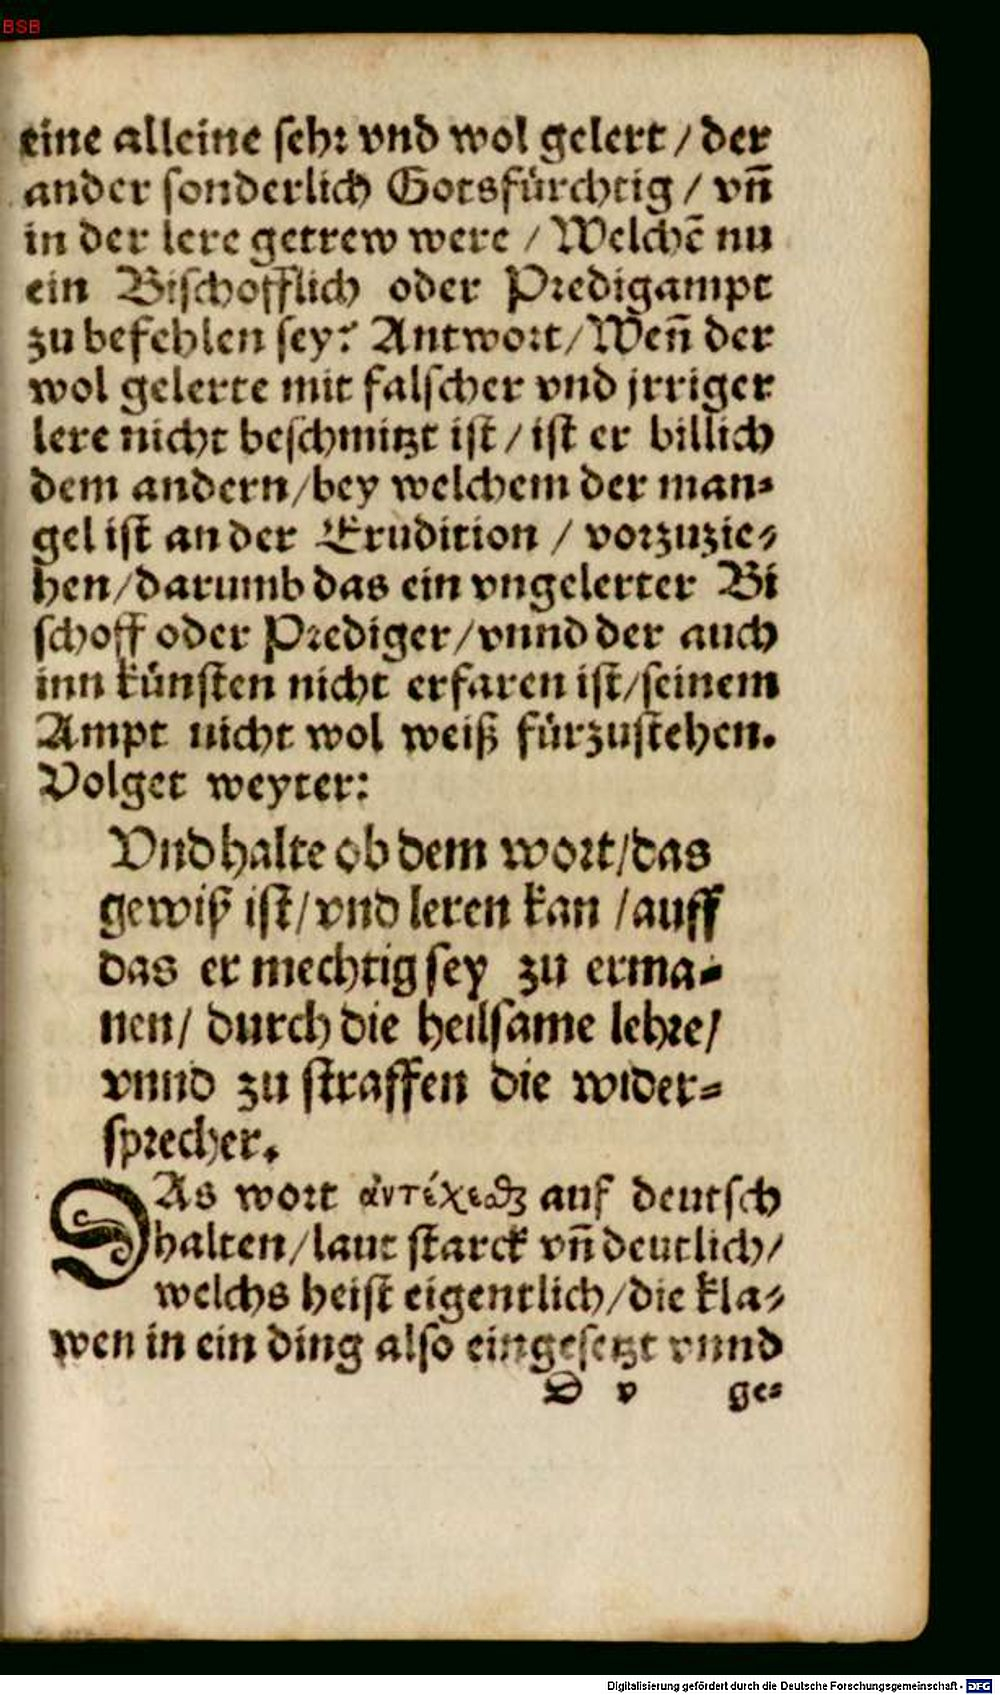 BSB
eine alleine sehr vnd wol gelert / der
ander sonderlich Gotsfürchtig / vñ
in der lere getrew were / Welchē nu
ein Bischofflich oder Predigampt
zu befehlen sey? Antwort / Weñ der
wol gelerte mit falscher vnd jrriger
lere nicht beschmitzt ist / ist er billich
dem andern / bey welchem der man⸗
gel ist an der Erudition / vorzuzie⸗
hen / darumb das ein vngelerter Bi
schoff oder Prediger / vnnd der auch
inn künsten nicht erfaren ist / seinem
Ampt nicht wol weiß fürzustehen.
Volget weyter:
Vnd halte ob dem wort / das
gewiß ist / vnd leren kan / auff
das er mechtig sey zu erma⸗
nen / durch die heilsame lehre /
vnnd zu straffen die wider⸗
sprecher.
DAs wort ἀντέχεσθαι auf deutsch
halten / laut starck vñ deutlich /
welchs heist eigentlich / die kla⸗
wen in ein ding also eingesetzt vnnd
D v ge⸗
Digitalisierung gefördert durch die Deutsche Forschungsgemeinschaft - DFG